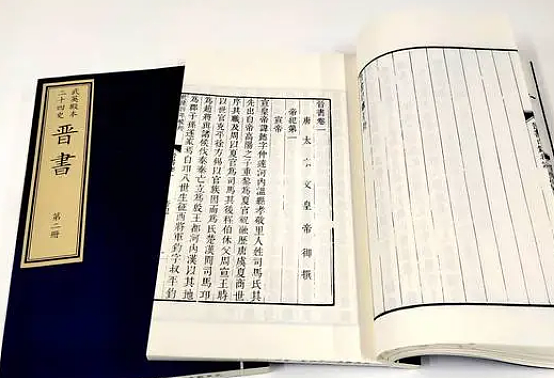 武英殿本
二十四史
晋書
第二冊
晉書卷一
唐太宗文皇帝御撰
帝紀第一
宣帝
宣皇帝諱懿字仲達河內溫縣孝敬里人姓司馬氏其
先出自帝高陽之子重黎爲夏官祝融歷唐虞夏商世
序其職及周以夏官爲司馬其後程伯休父周宣王時
以世官克平徐方錫以官族因而爲氏楚漢間司馬卬
爲趙將與諸侯伐秦秦亡立爲殷王都河內漢以其地
爲郡子孫遂家焉自卬八世生征西將軍鈞字叔平鈞